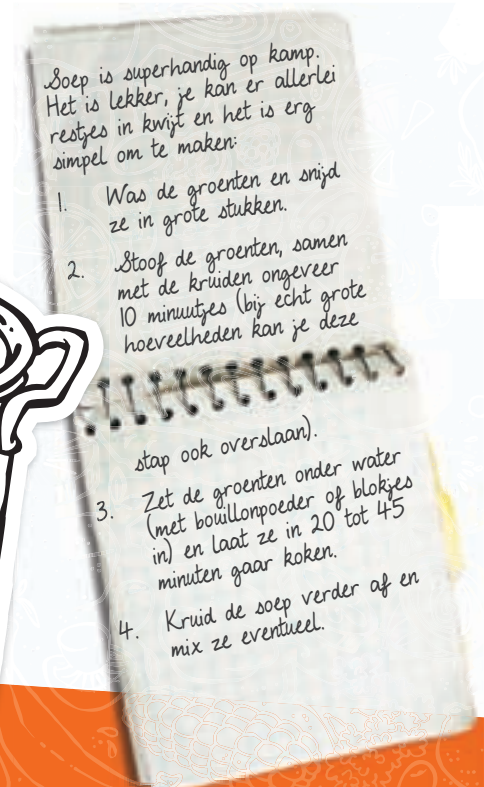 Soep is superhandig op kamp.
Het is lekker, je kan er allerlei
restjes in kwijt en het is erg
simpel om te maken:
1. Was de groenten en snijd
ze in grote stukken.
2. Stoof de groenten, samen
met de kruiden ongeveer
10 minuutjes (bij echt grote
hoeveelheden kan je deze
stap ook overslaan).
3. Zet de groenten onder water
(met bouillonpoeder of blokjes
in) en laat ze in 20 tot 45
minuten gaar koken.
4. Kruid de soep verder af en
mix ze eventueel.